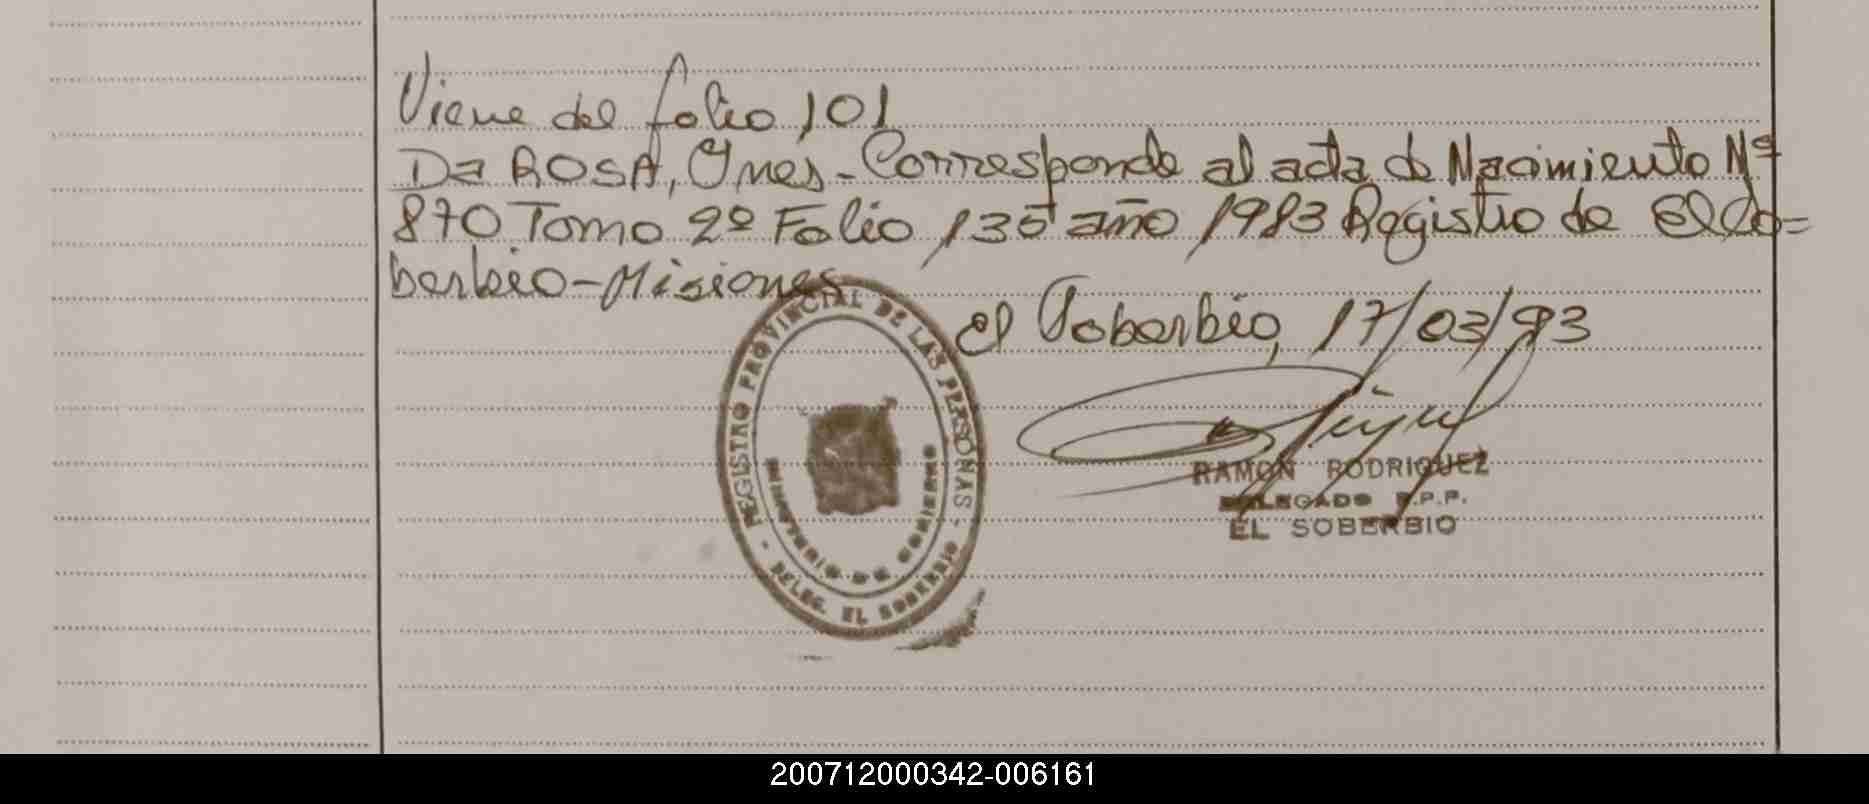 Viene del folio 101
Da ROSA, Ynes - Corresponde al acta de Nacimiento Nº
870 Tomo 2º Folio 135 año 1983 Registro de El So=
berbio - Misiones
El Soberbio, 17/03/93
REGISTRO PROVINCIAL DE LAS PERSONAS - DELEG. EL SOBERBIO -
MINISTERIO DE GOBIERNO
RAMON RODRIGUEZ
DELEGADO R.P.P.
EL SOBERBIO
200712000342-006161